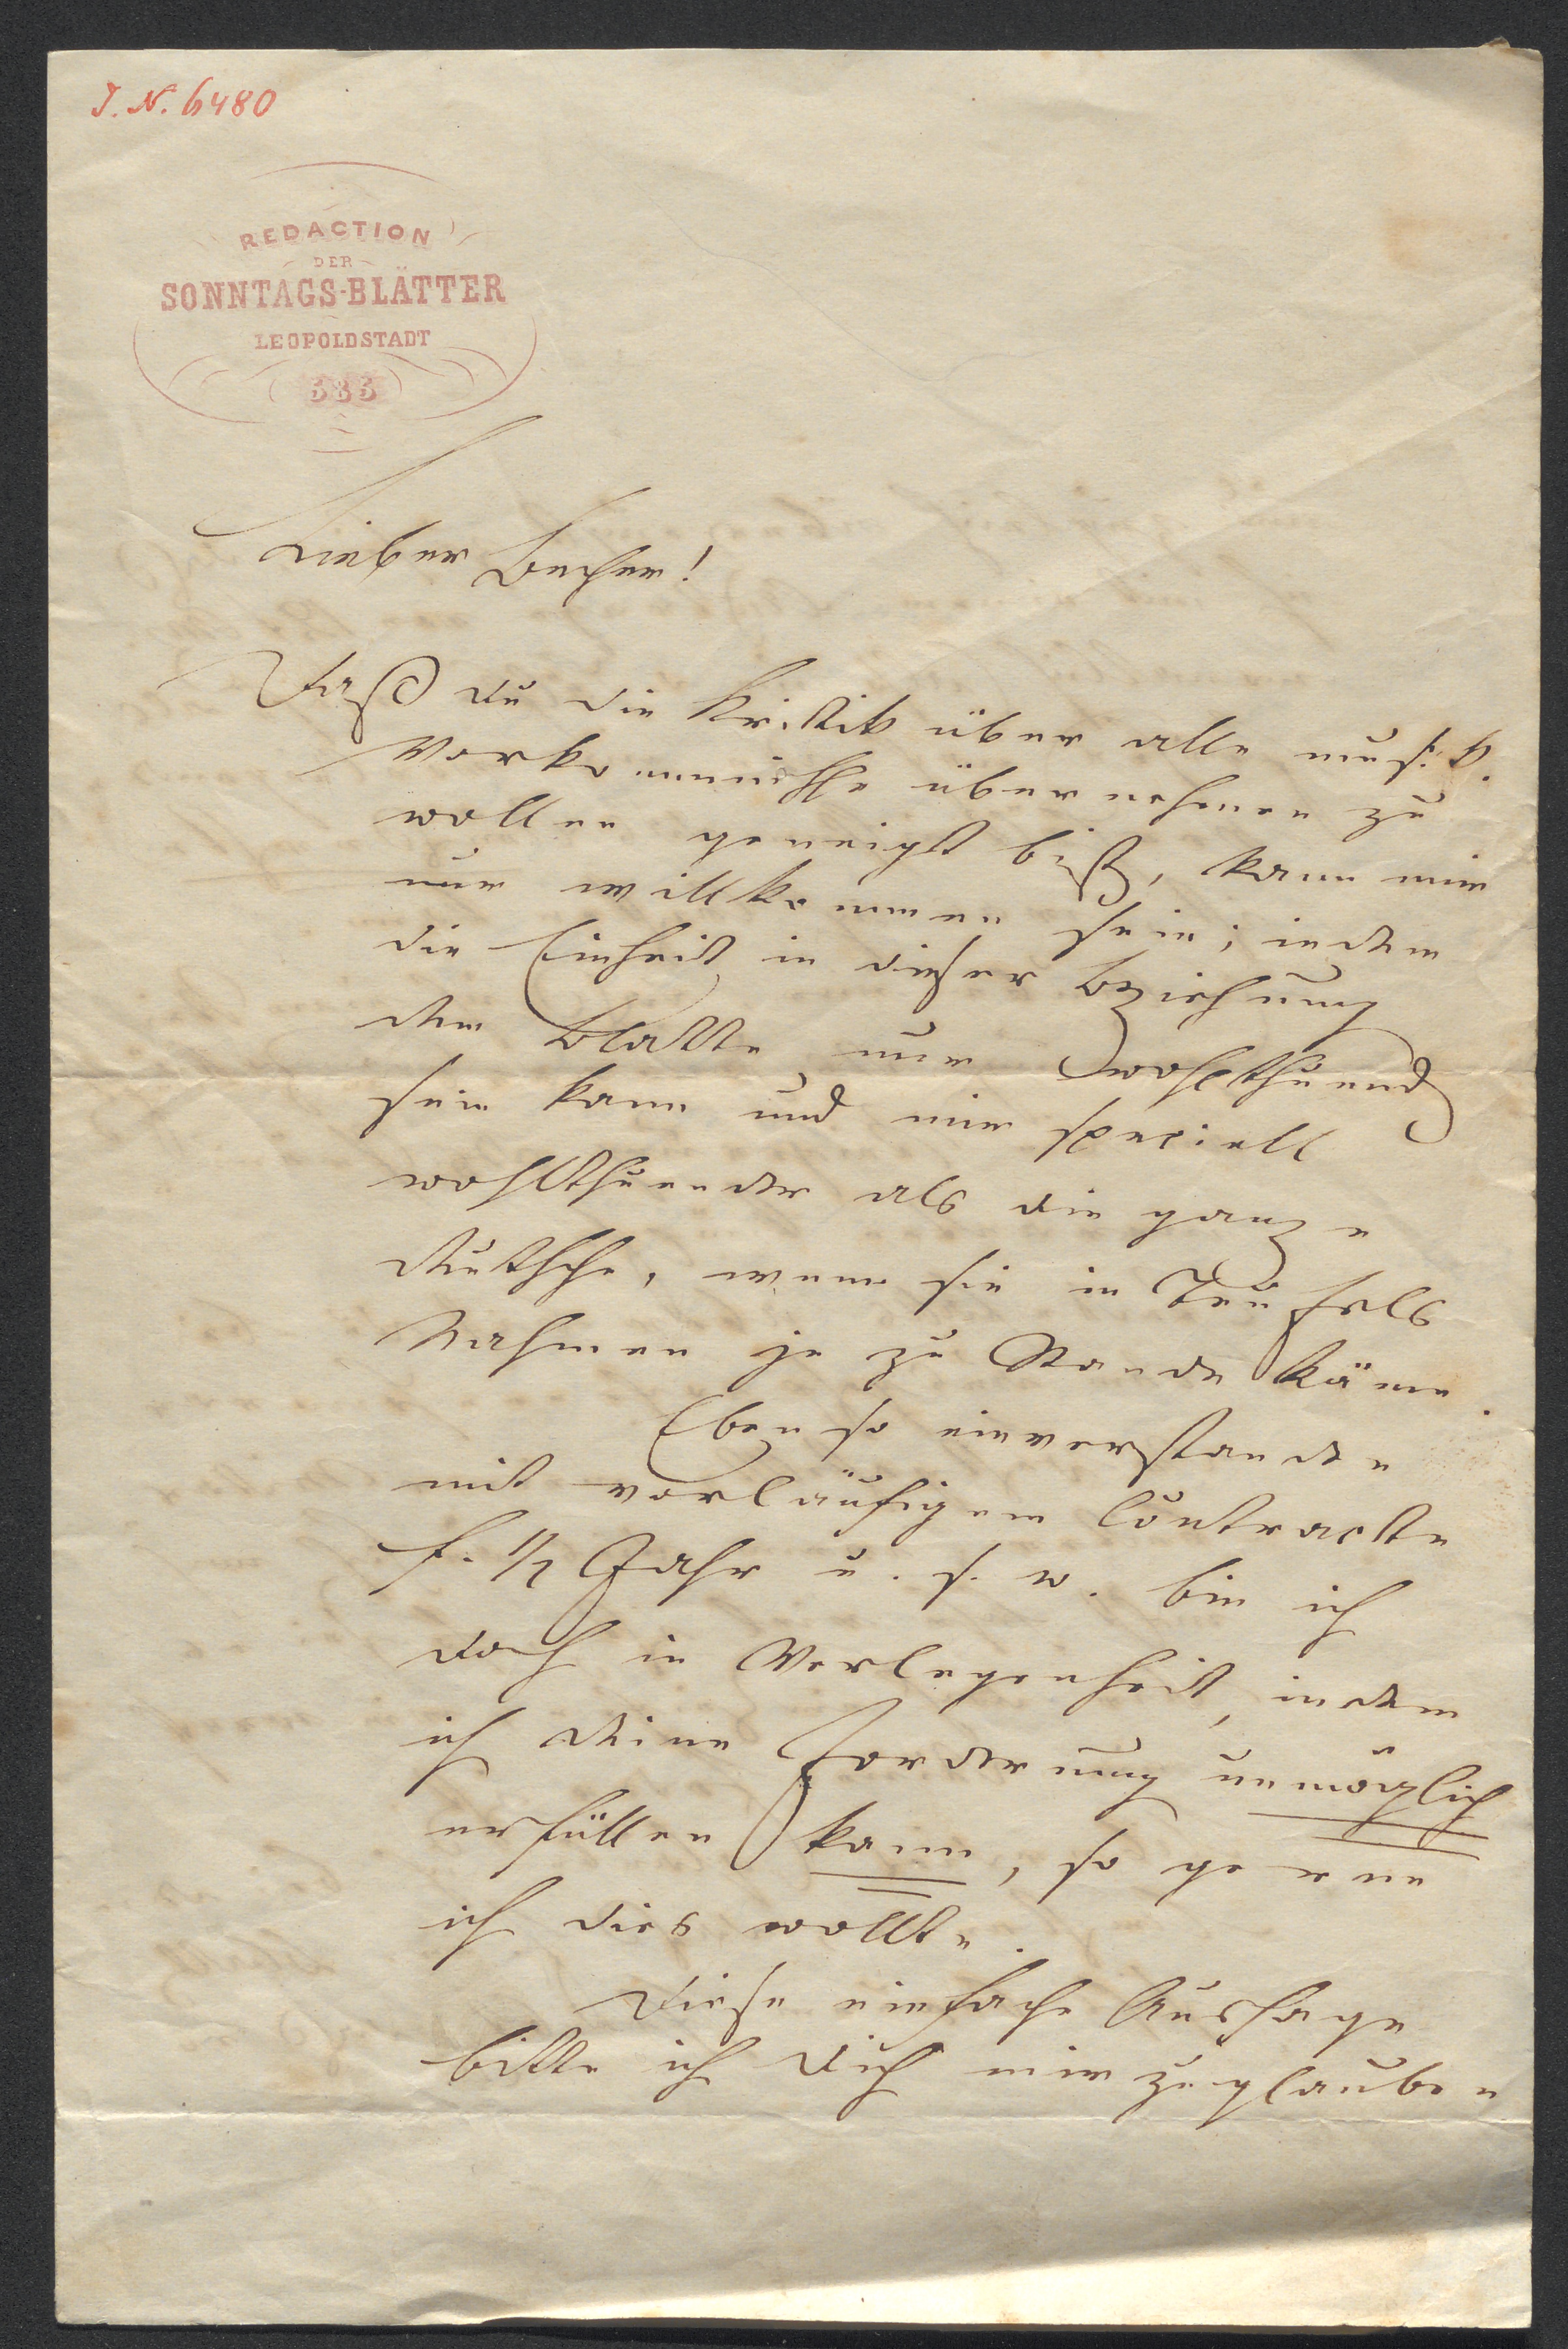 I. N. 6480
REDACTION
DER
SONNTAGS-BLÄTTER
LEOPOLDSTADT
Lieber Becher!
Daß du die Kritik über alle musik.
Vorkommnisse übernehmen zu
wollen geneigt bist, kann mir
nur willkommen sein; indem
die Einheit in dieser Beziehung
dem Blatte nur wohlthuend
sein kann und mir speciell
wohlthuender als die ganze
deutsche, wenn sie in Teufels
Nahmen je zu Stande käme.
Ebenso einverstanden
mit vorläufigem Contracte
f. 1/2 Jahr u. s. w. bin ich
doch in Verlegenheit, indem
ich deine Forderung unmöglich
erfüllen kann, so gerne
ich dies wollte.
Diese einfache Aussage
bitte ich dich mir zu glauben